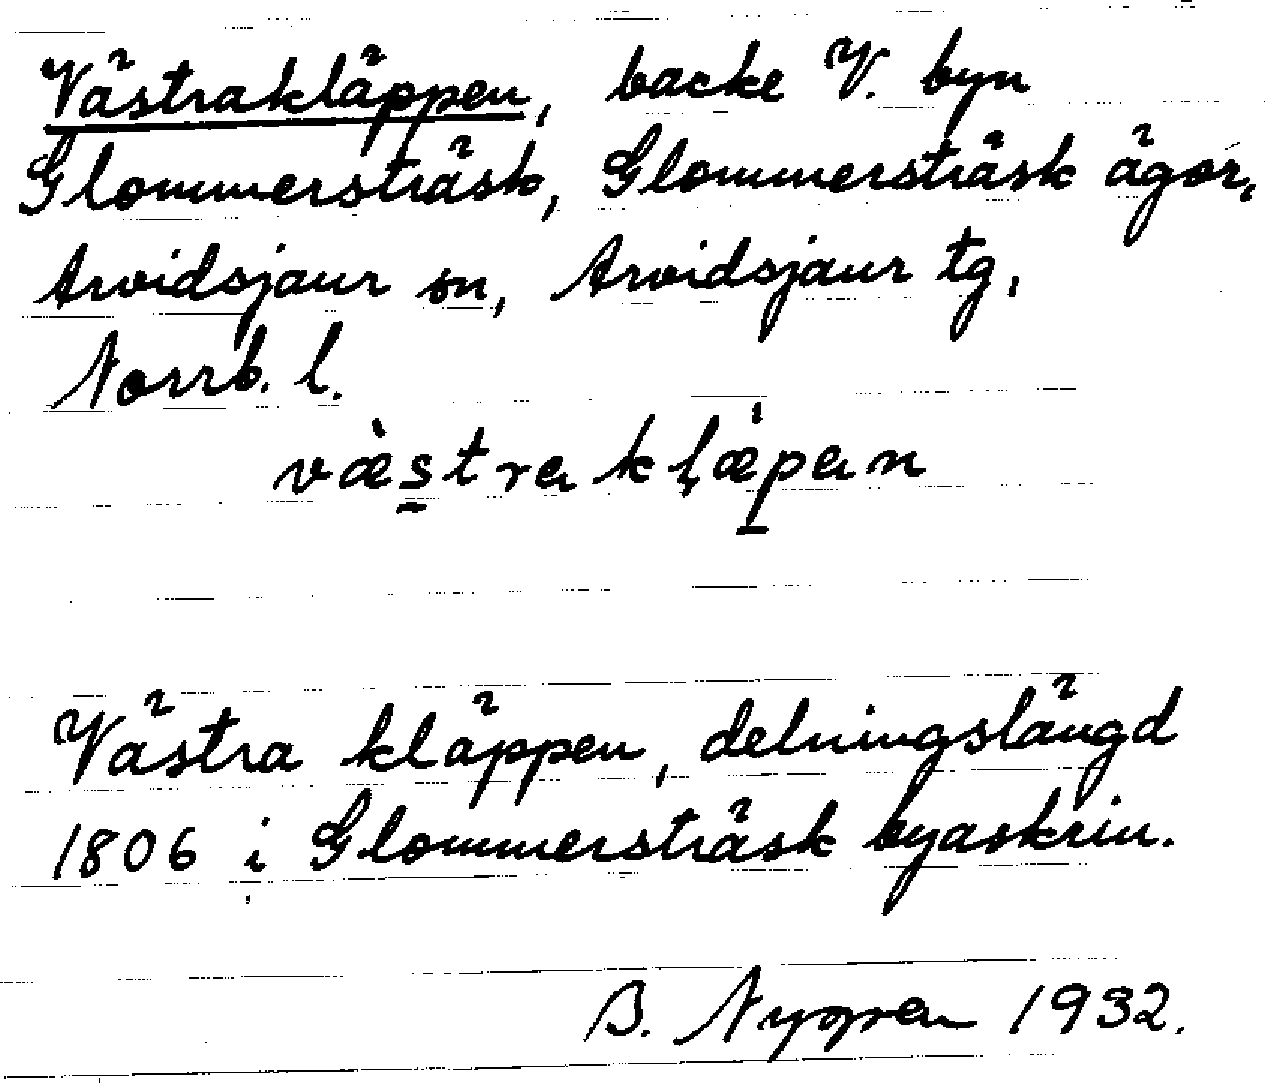 Västrakläppen, backe V. byn
Glommersträsk, Glommersträsk ägor,
Arvidsjaur sn, Arvidsjaur tg,
Norrb. l.
væ̀s̱trakḷæ̀p̱an
Västra kläppen, delningslängd
1806 i Glommersträsk byaskrin.
B. Nygren 1932.